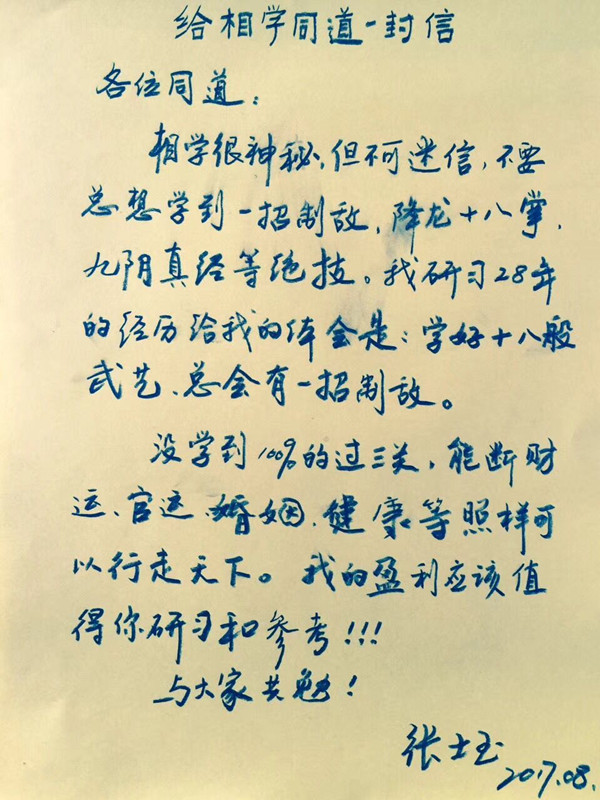 给相学同道一封信
各位同道：
相学很神秘，但不可迷信，不要
总想学到一招制敌，降龙十八掌，
九阴真经等绝技。我研习28年
的经历给我的体会是：学好十八般
武艺、总会有一招制敌。
没学到100%的过三关，能断财
运、官运、婚姻、健康等照样可
以行走天下。我的盈利应该值
得你研习和参考！！！
与大家共勉！
张士玉
2017.08.